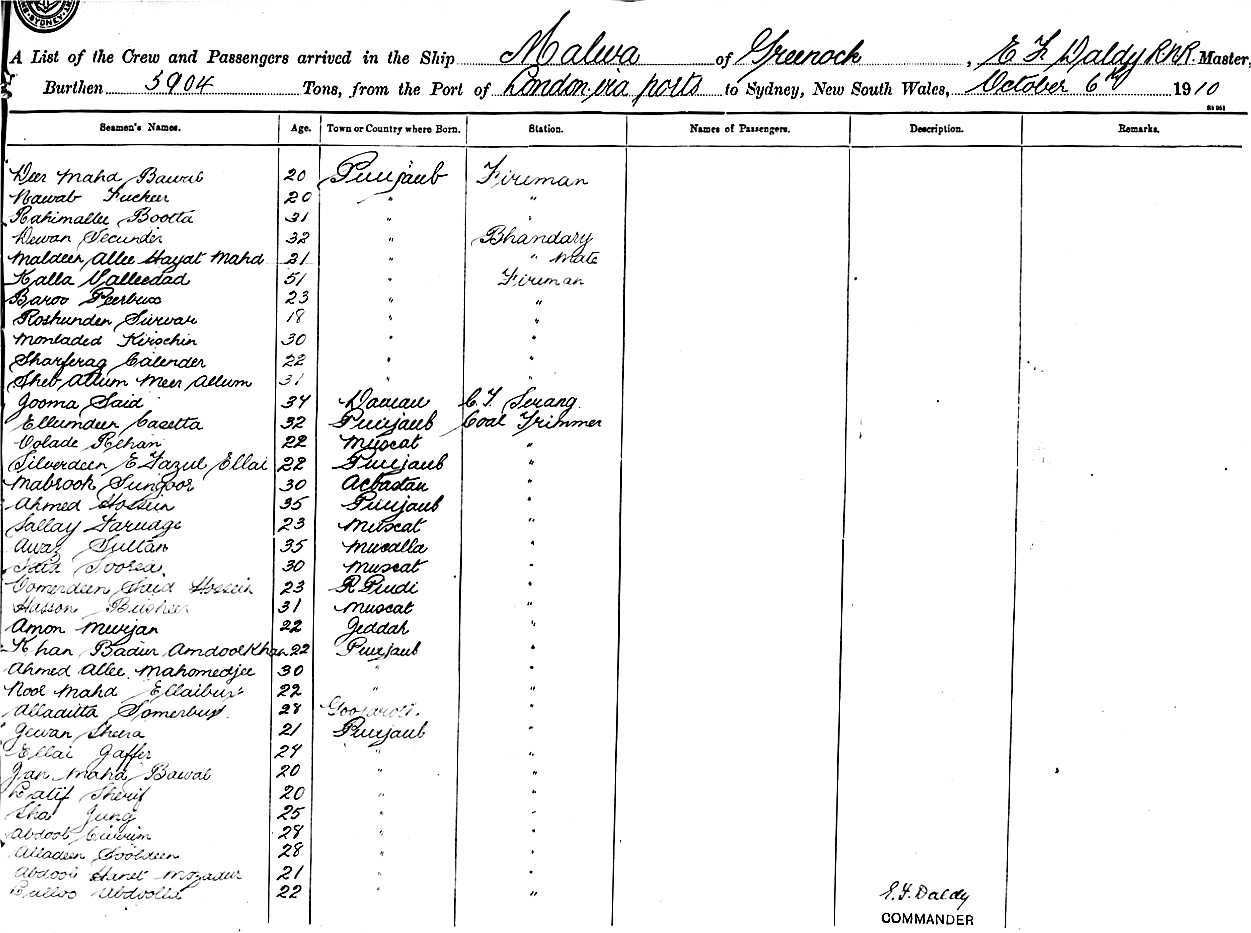 SYDNEY
A List of the Crew and Passengers arrived in the Ship Malwa of Greenock, E F Daldy R.N.R. Master,
Burthen 5904 Tons, from the Port of London via ports to Sydney, New South Wales, October 6th 1910
Seamen's Names. Age. Town or Country where Born. Station. Names of Passengers. Description. Remarks.
Deer Mahd Bawab 20 Punjaub Fireman
Nawab Fucker 20 " "
Rahimallee Bootta 31 " "
Dewan Secunder 32 " Bhandary
Maldeen Allee Hayat Mahd 21 " " Mate
Kalla Valleedad 51 " Fireman
Baroo Peerbux 23 " "
Roshunden Survar 18 " "
Montaded Kirochin 30 " "
Sharferag Calender 22 " "
Sheb Allum Meer Allum 31 " "
Jooma Said 34 C. F. Serang
Ellumdeen Casetta 32 Punjaub Coal Trimmer
Volade Rehan 22 Muscat "
Silverdeen E Fazul Ellai 22 Punjaub "
Mabrook Sungoor 30 "
Ahmed Hossein 35 Punjaub "
Sallay Farudge 23 Muscat "
Awaz Sultan 35 Mucalla "
Said Soorea 30 Muscat "
Oomerdeen Said Hossein 23 R Pindi "
Hasson Busheer 31 Muscat "
Amon Murjan 22 Jeddah "
Khan Badur Amdool Khan 22 Punjaub "
Ahmed Allee Mahomedjee 30 " "
Noor Mahd Ellaibux 22 " "
Alladitta Somerbux 28 "
Jewan Sheera 21 Punjaub "
Ellai Gaffer 24 " "
Jan Mahd Bawab 20 " "
Latif Sherif 20 " "
Sha Jung 25 " "
Abdool Currim 28 " "
Alladeen Sooldeen 28 " "
Abdool 21 " "
Calloo Abdoolla 22 " "
E. F. Daldy
COMMANDER